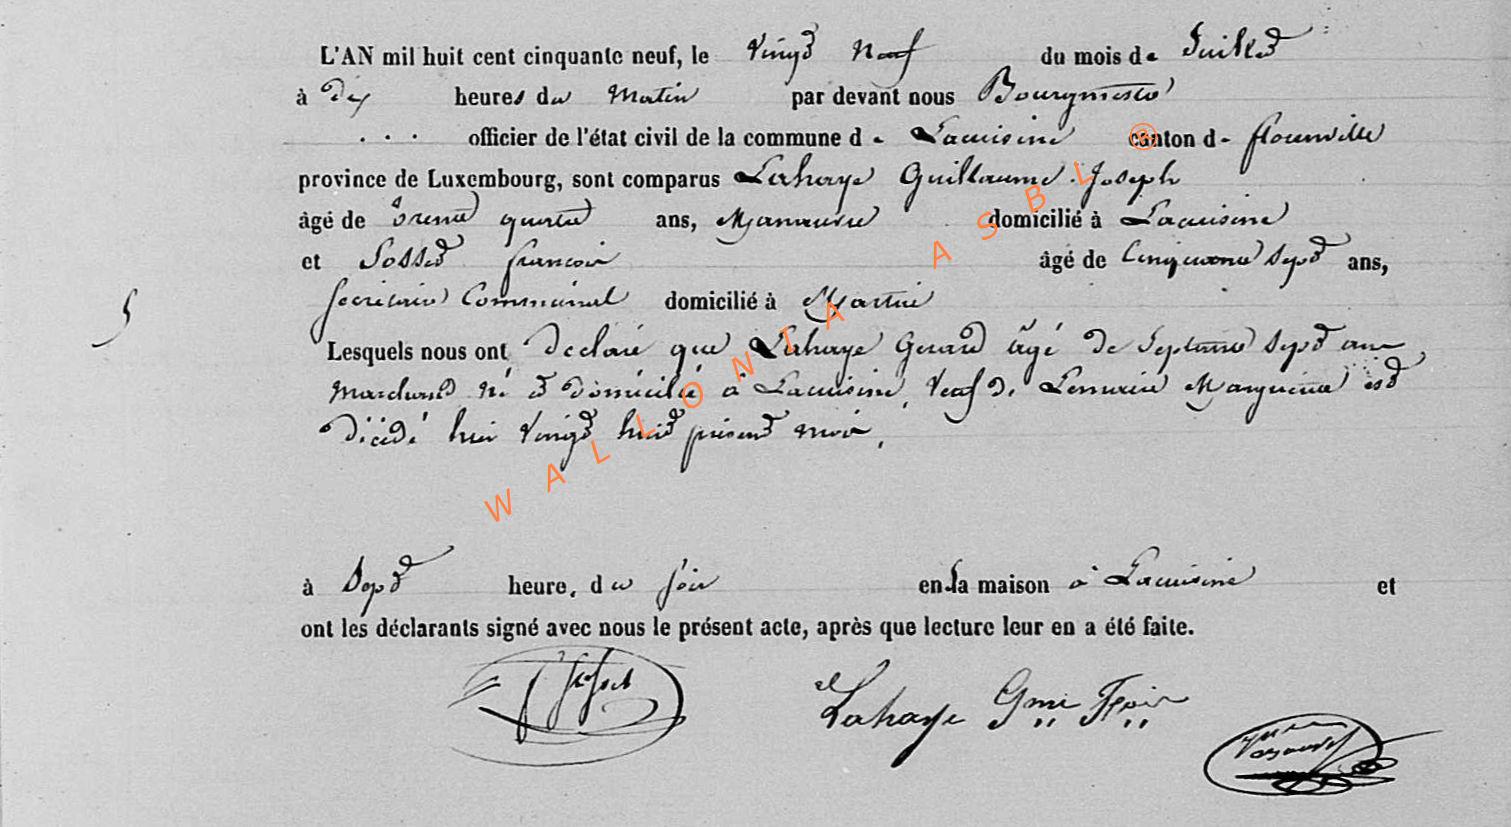 L'AN mil huit cent cinquante neuf, le vingt neuf du mois de Juillet
à dix heures du matin par devant nous Bourgmestre
. . . officier de l'état civil de la commune de Lacuisine canton de florenville
province de Luxembourg, sont comparus Lahaye Guillaume Joseph
âgé de trente quatre ans, Manœuvre domicilié à Lacuisine
et Josset françois âgé de Cinquante sept ans,
secrétaire Communal domicilié à Martué
Lesquels nous ont déclaré que Lahaye Gerard âgé de Septante sept ans
marchand né et domicilié à Lacuisine, veuf de Marguerite est
décédé hier vingt huit présent mois,
à Sept heure, du soir en sa maison à Lacuisine et
ont les déclarants signé avec nous le présent acte, après que lecture leur en a été faite.
Lahaye Gme
WALLONIA ASBL ®